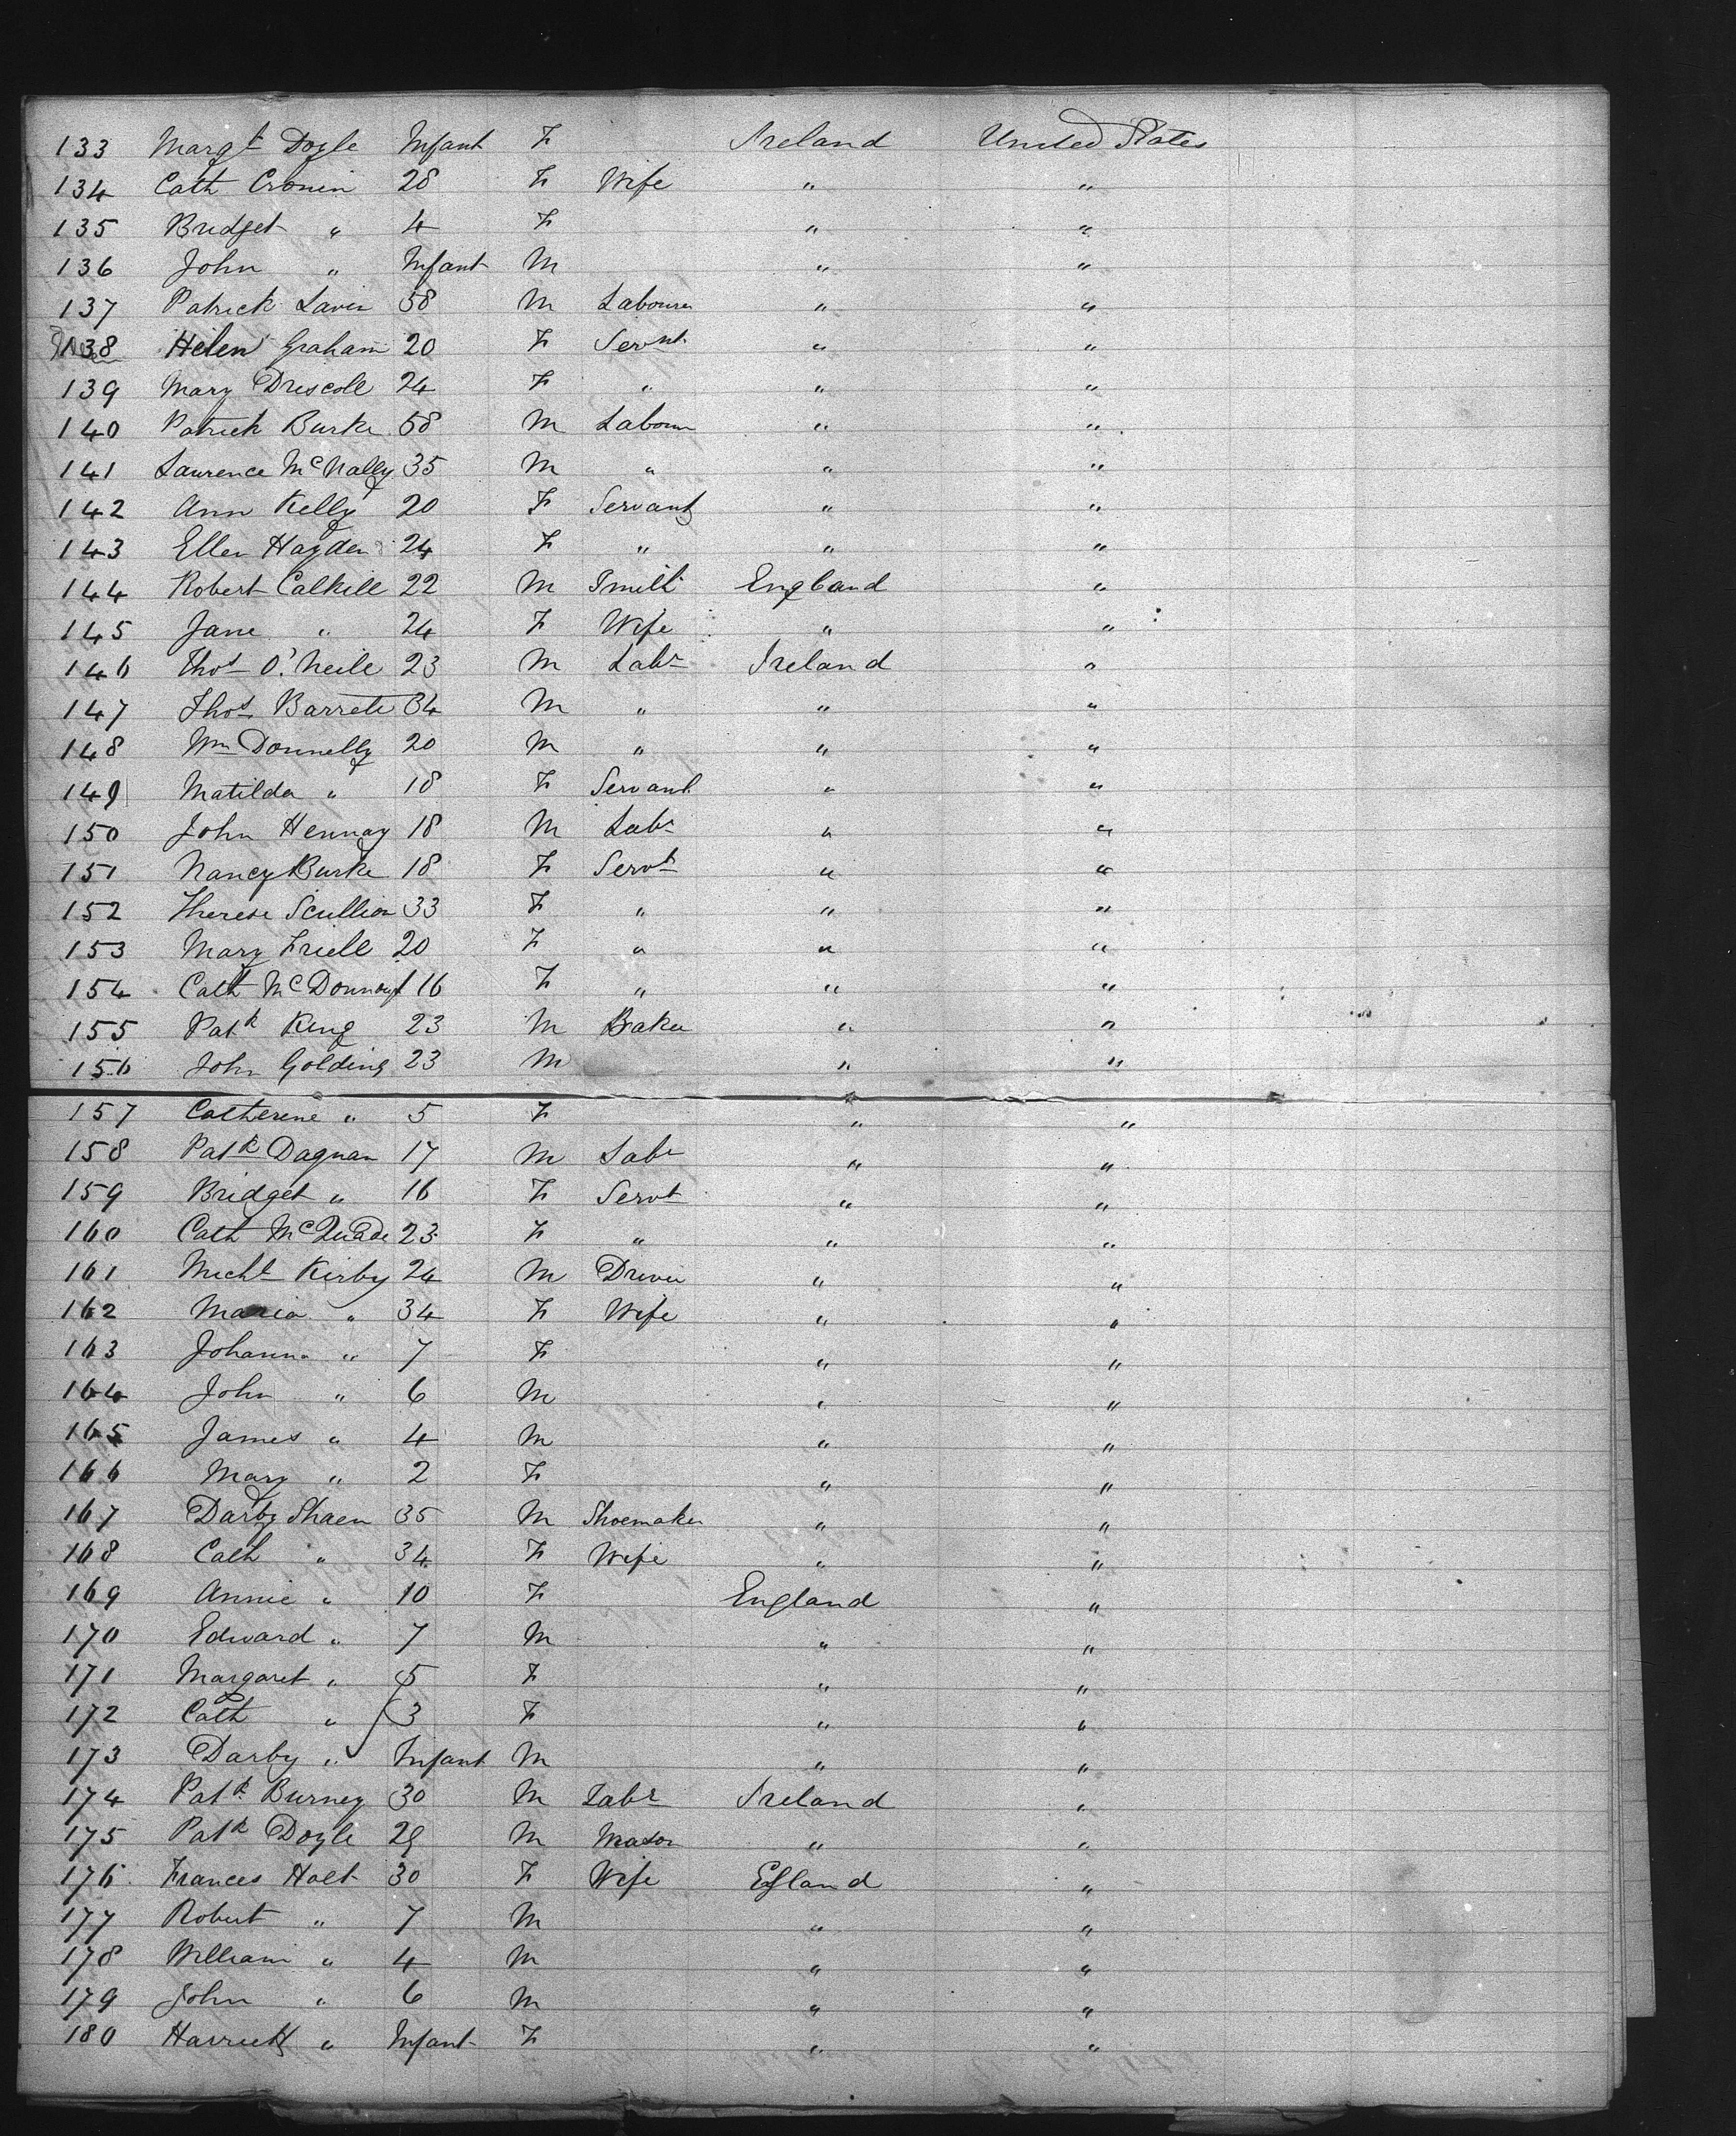 133 Margt Doyle Infant F Ireland United States
134 Cath Cronin 28 F Wife " "
135 Bridget " 4 F " "
136 John " Infant M " "
137 Patrick Lavin 58 M Labourer " "
138 Helen Graham 20 F Servnt " "
139 Mary Driscoll 24 F " " "
140 Patrick Burke 58 M Labourer " "
141 Laurence McNally 35 M " " "
142 Ann Kelly 20 F Servant " "
143 Ellen Hayden 24 F " " "
144 Robert Calkill 22 M Smith England "
145 Jane " 24 F Wife " "
146 Thos O'Neile 23 M Labr Ireland "
147 Thos Barrett 34 M " " "
148 Wm Donnelly 20 M " " "
149 Matilda " 18 F Servant " "
150 John Hennay 18 M Labr " "
151 Nancy Burke 18 F Servt " "
152 Therese Scullion 33 F " " "
153 Mary Friell 20 F " " "
154 Cath McDonnouf 16 F " " "
155 Patk King 23 M Baker " "
156 John Golding 23 M " "
157 Catherine " 5 F " "
158 Patk Dagnan 17 M Labr " "
159 Bridget " 16 F Servt " "
160 Cath McQuade 23 F " " "
161 Michl Kirby 24 M Driver " "
162 Maria " 34 F Wife " "
163 Johanna " 7 F " "
164 John " 6 M " "
165 James " 4 M " "
166 Mary " 2 F " "
167 Darby Shaen 35 M Shoemaker " "
168 Cath " 34 F Wife " "
169 Annie " 10 F England "
170 Edward " 7 M " "
171 Margaret " 5 F " "
172 Cath " 3 F " "
173 Darby " Infant M " "
174 Patk Burney 30 M Labr Ireland "
175 Patk Doyle 29 M Mason " "
176 Frances Holt 30 F Wife England "
177 Robert " 7 M " "
178 William " 4 M " "
179 John " 6 M " "
180 Harriett " Infant F " "